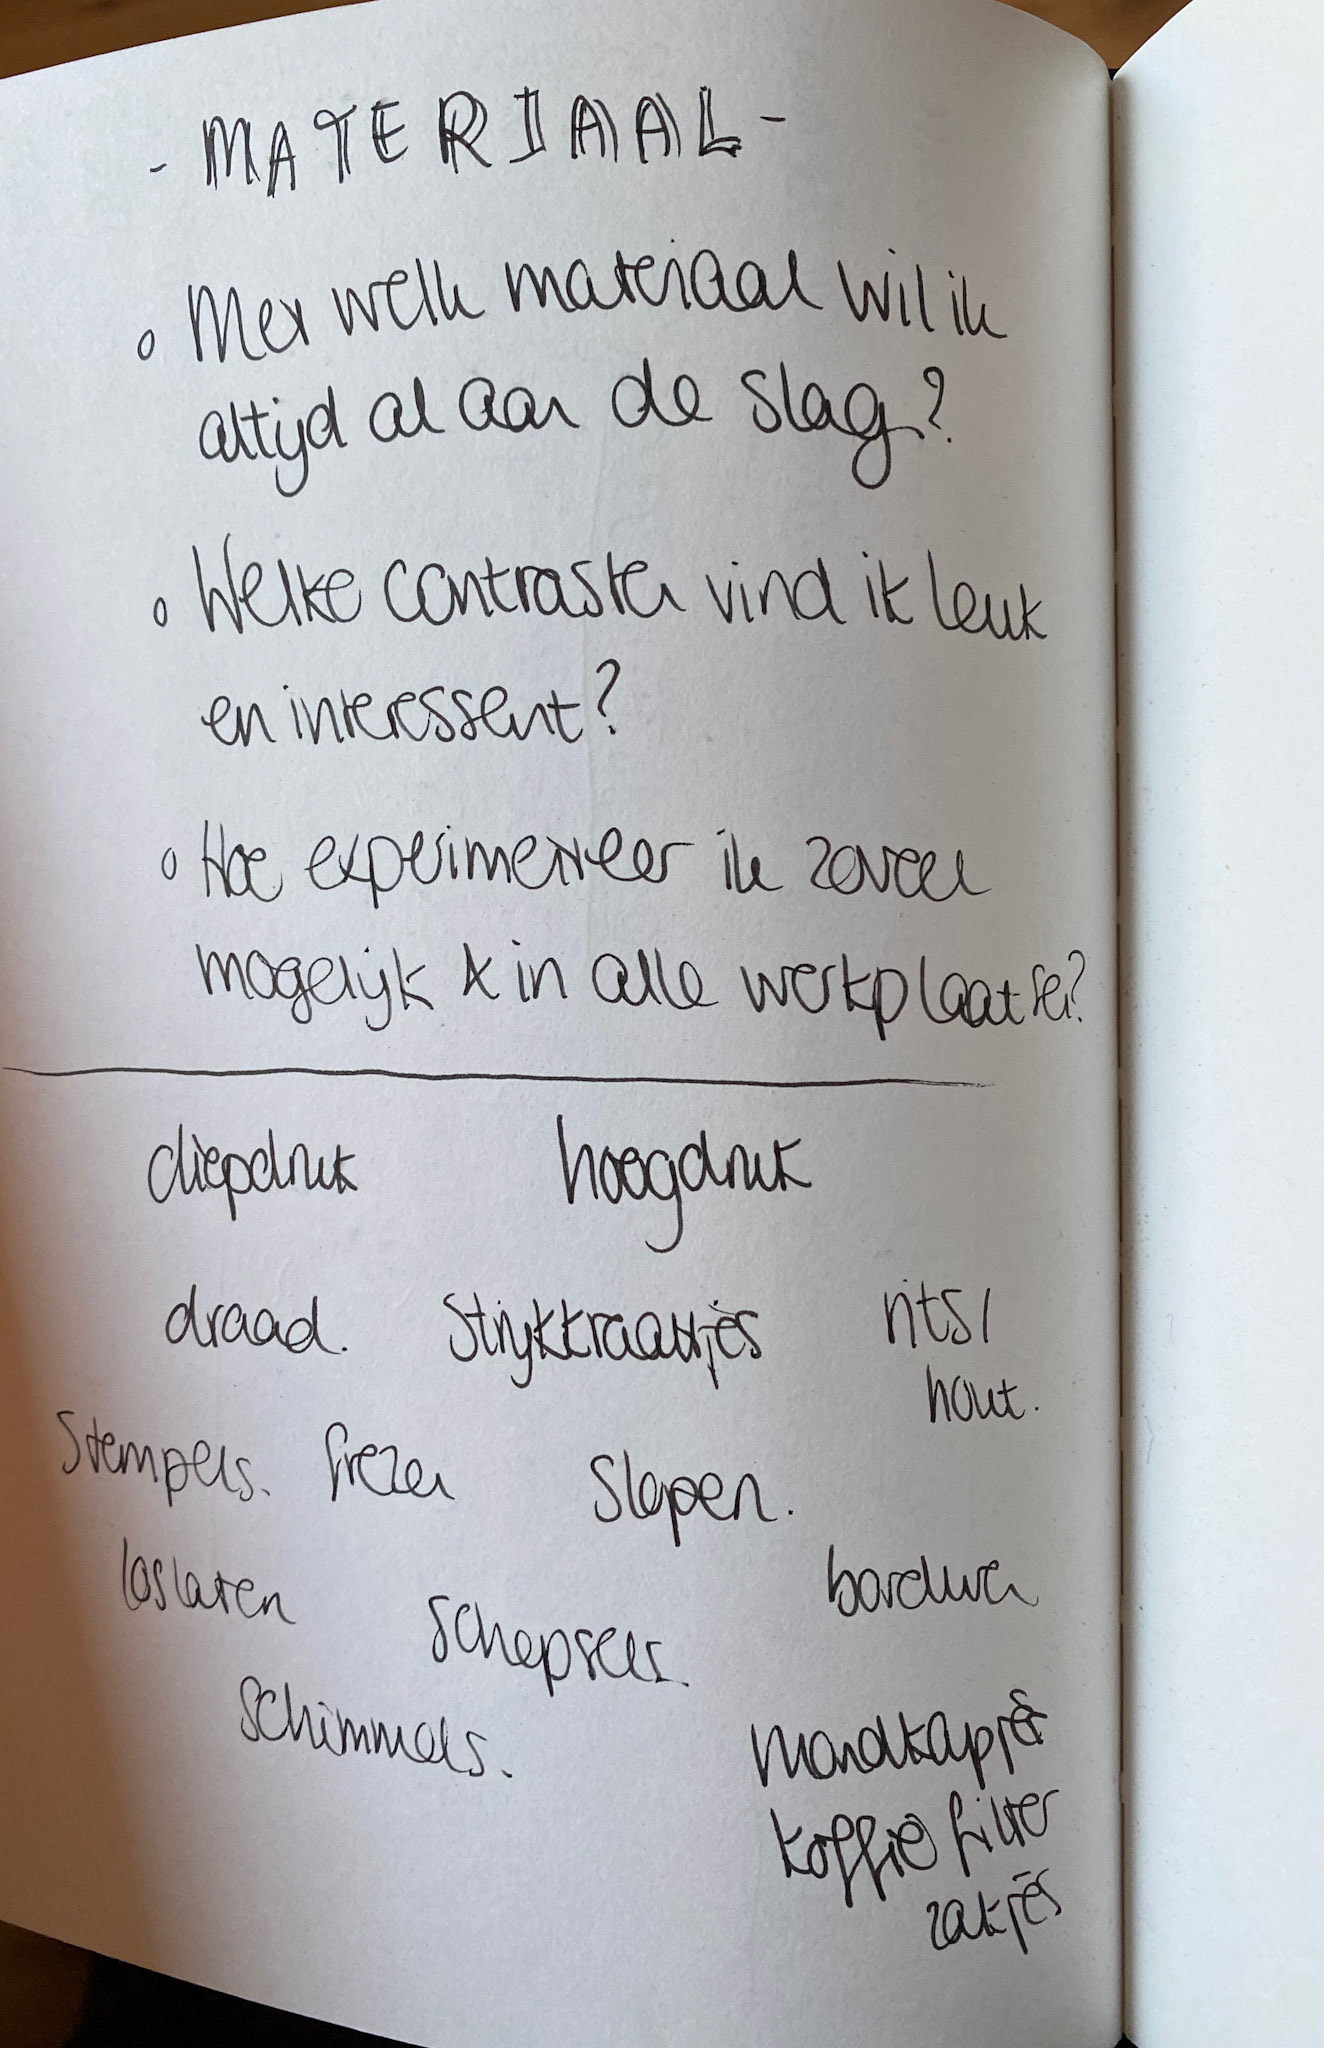 - MATERIAAL -
o Met welk materiaal wil ik
altijd al aan de slag?
o Welke contrasten vind ik leuk
en interessent?
o Hoe experimenteer ik zoveel
mogelijk & in alle werkplaatsen?
diepdruk hoogdruk
draad. Strijkkraaltjes rits/
hout.
Stempels. frezen Slapen.
loslaten borduren
Schepsels.
Schimmels.
Mondkapjes
koffie filter
zakjes